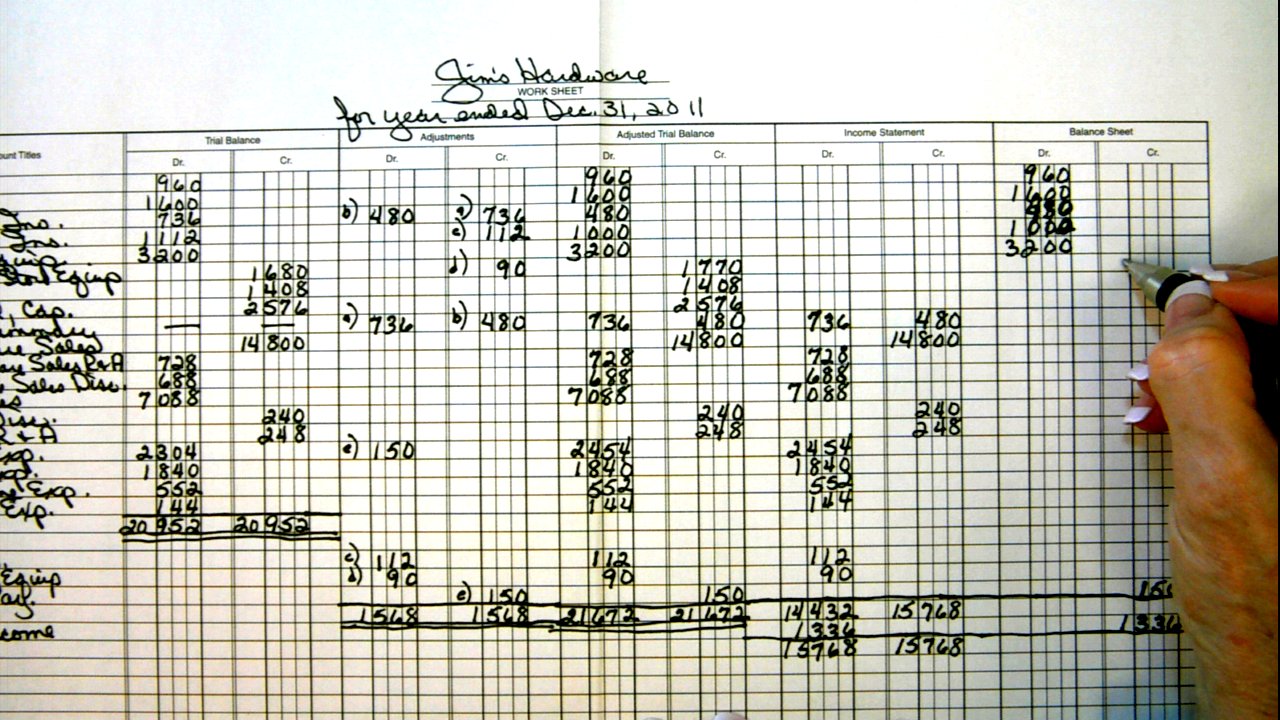 Jim's Hardware
WORK SHEET
for year ended Dec. 31, 2011
Trial Balance Adjustments Adjusted Trial Balance Income Statement Balance Sheet
unt Titles Dr. Cr. Dr. Cr. Dr. Cr. Dr. Cr. Dr. Cr.
960 960 960
1600 1600 1600
Ins. 736 b) 480 a) 736 480 480
Ins. 1112 c) 112 1000 1000
Equip. 3200 3200 3200
Store Equip 1680 d) 90 1770
1408 1408
, Cap. 2576 2576
— — a) 736 b) 480 736 480 736 480
Sales 14800 14800 14800
Sales R+A 728 728 728
Sales Disc. 688 688 688
es 7088 7088 7088
Disc. 240 240 240
R + A 248 248 248
Exp. 2304 e) 150 2454 2454
1840 1840 1840
Exp. 552 552 552
Exp. 144 144 144
20952 20952
c) 112 112 112
Equip d) 90 90 90
ay. e) 150 150 150
1568 1568 21672 21672 14432 15768
come 1336 1336
15768 15768